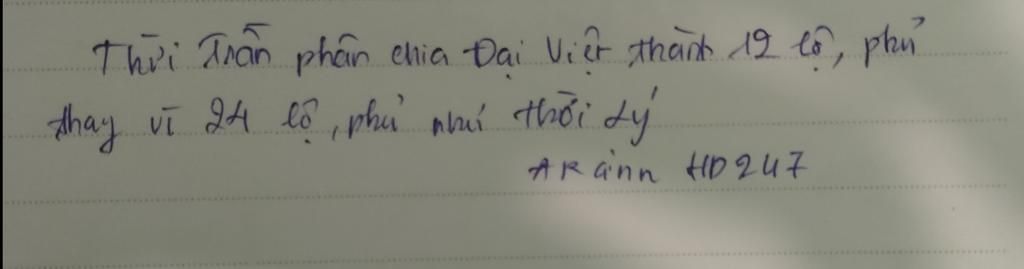 Thời Trần phân chia Đại Việt thành 12 lộ, phủ
thay vì 24 lộ, phủ như thời Lý
ARảnh HD247